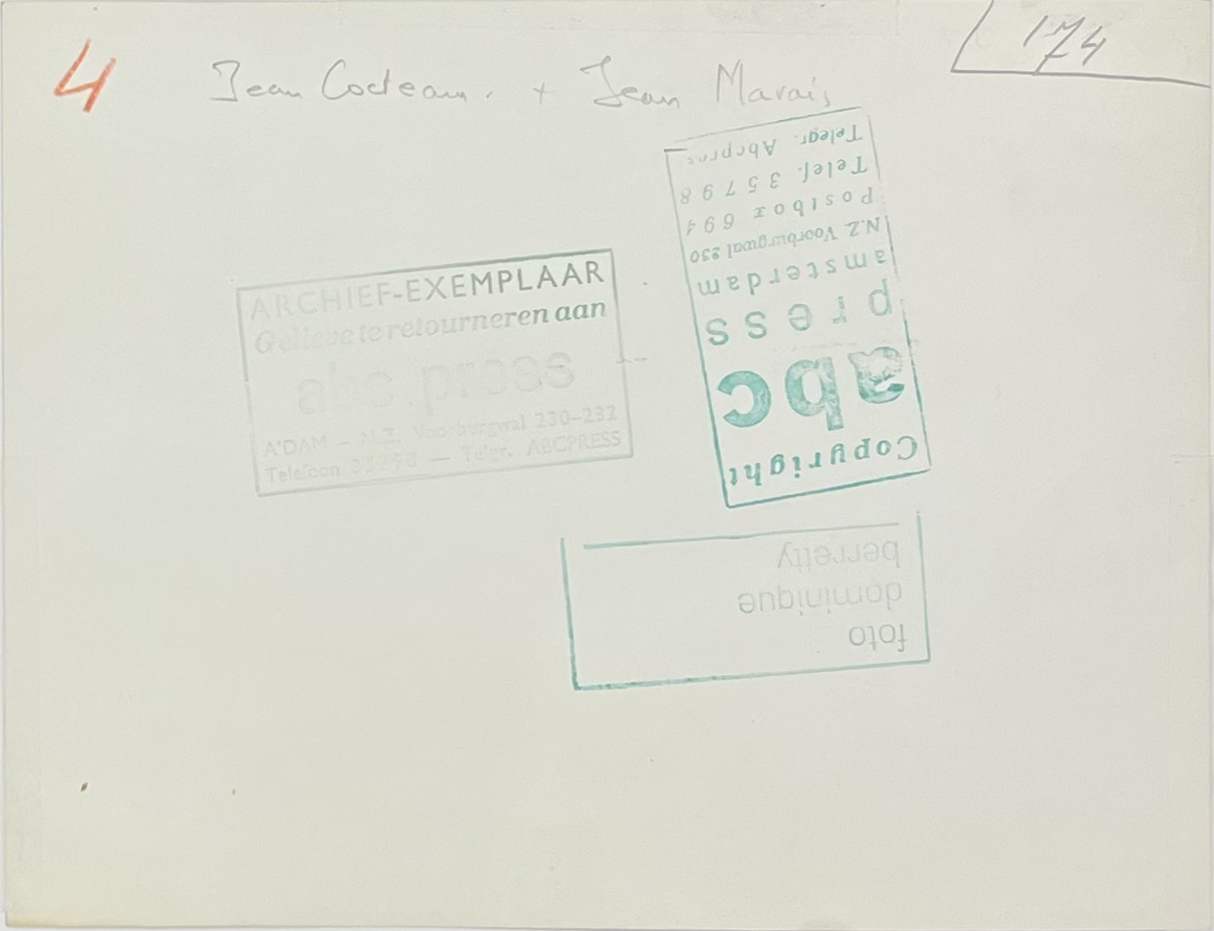 4
Jean Cocteau. + Jean Marais
174
ARCHIEF-EXEMPLAAR
Gelieve te retourneren aan
abc press
A'DAM – N.Z. Voorburgwal 230–232
Telefoon — Telgr. ABCPRESS
Copyright
abc
press
amsterdam
N.Z. Voorburgwal 230
Postbox 694
Telef. 35798
Telegr. Abcpress
foto
dominique
berretty